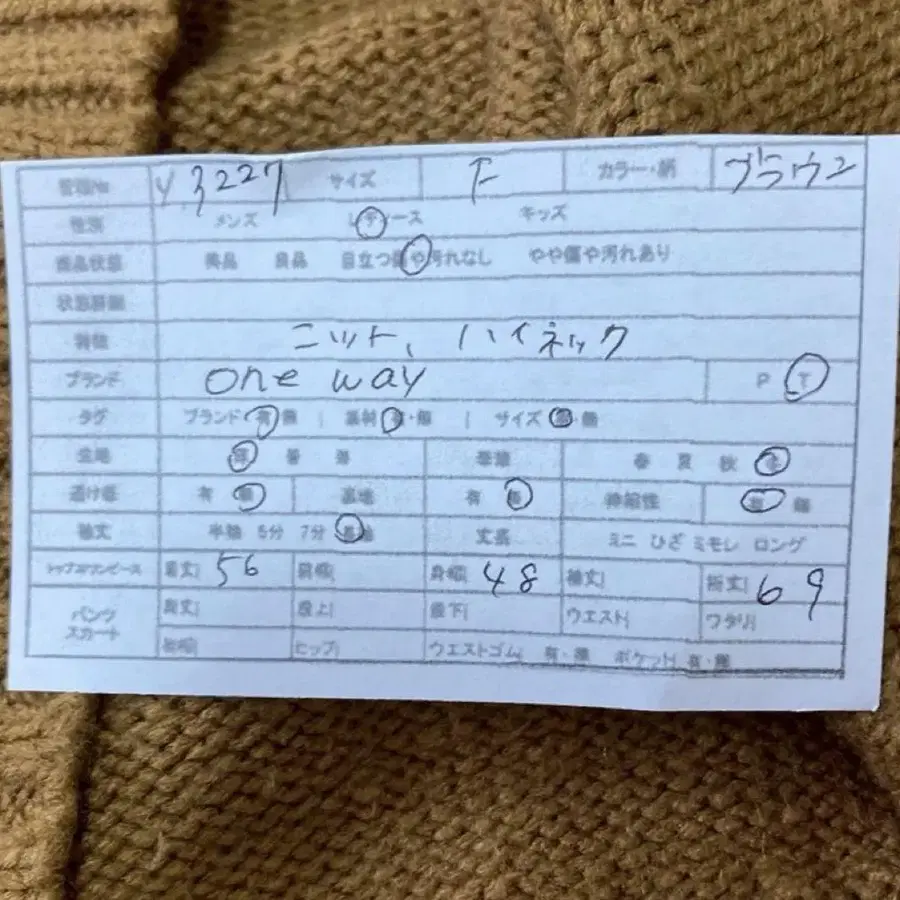 管理No Y3227 サイズ F カラー・柄 ブラウン
種別 メンズ レディース キッズ
商品状態 美品 良品 目立つ傷や汚れなし やや傷や汚れあり
状態詳細
特徴 ニット、ハイネック
ブランド one way P T
タグ ブランド 有・無 | 素材 有・無 | サイズ 有・無
生地 厚 普 薄 季節 春 夏 秋 冬
透け感 有 無 裏地 有 無 伸縮性 有 無
袖丈 半袖 5分 7分 長袖 丈長 ミニ ひざ ミモレ ロング
トップス/ワンピース 着丈| 56 肩幅| 身幅| 48 袖丈| 裄丈| 69
パンツ スカート 総丈| 股上| 股下| ウエスト| ワタリ|
裾幅| ヒップ| ウエストゴム| 有・無 ポケット| 有・無